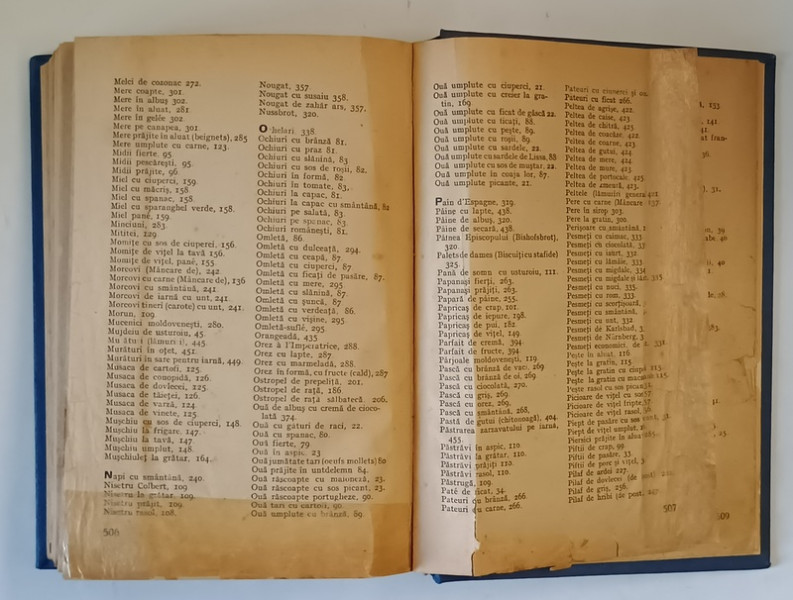 Melci de cozonac 272.
Mere coapte, 301.
Mere în albuș 302.
Mere în aluat, 281
Mere în gelée 302.
Mere pe canapea, 301.
Mere prăjite în aluat (beignets), 285
Mere umplute cu carne, 123.
Midii fierte, 95.
Midii pescărești, 95.
Midii prăjite, 96
Miel cu ciuperci, 159.
Miel cu măcriș, 158.
Miel cu spanac, 158
Miel cu sparanghel verde, 158.
Miel pané, 159.
Minciuni, 283.
Mititei, 129
Momițe cu sos de ciuperci, 156.
Momițe de vițel la tavă 156.
Momițe de vițel, pané, 155
Morcovi (Mâncare de), 242
Morcovi cu carne (Mâncare de), 136
Morcovi cu smântână, 241
Morcovi de iarnă cu unt, 241.
Morcovi tineri (carote) cu unt, 241.
Morun, 109
Mucenici moldovenești, 280.
Mujdeiu de usturoiu, 45.
445.
Murături în oțet, 451.
Murături în sare pentru iarnă, 449
Musaca de cartofi, 125.
Musaca de conopidă, 126.
Musaca de dovlecei, 125.
Musaca de tăieței, 126.
Musaca de varză, 124
Musaca de vinete, 125.
Mușchiu cu sos de ciuperci, 148.
Mușchiu la frigare, 147.
Mușchiu la tavă, 147.
Mușchiu umplut, 148.
Mușchiuleț la grătar, 164.
Napi cu smântână, 240.
Nisetru Colbert, 109
Nisetru în grătar, 109.
Nisetru prăjit, 109.
Nisetru rasol, 108.
506
Nougat, 357.
Nougat cu susaiu 358.
Nougat de zahăr ars, 357.
Nussbrot, 320.
338.
Ochiuri cu brânză 81.
Ochiuri cu praz 81.
Ochiuri cu slănină, 83
Ochiuri cu sos de roșii, 82.
Ochiuri în formă, 82
Ochiuri în tomate, 83.
Ochiuri la capac, 81.
Ochiuri la capac cu smântână, 82
Ochiuri pe salată, 83.
Ochiuri pe spanac, 83.
Ochiuri românești, 81.
Omletă, 86.
Omletă cu dulceață, 294.
Omletă cu ceapă, 87.
Omletă cu ciuperci, 87
Omletă cu ficați de pasăre, 87.
Omletă cu mere, 295
Omletă cu slănină, 87.
Omletă cu șuncă, 87
Omletă cu verdeață, 86.
Omletă cu vișine, 295
Omletă-suflé, 295.
Orangeadă, 435
Orez à l'Imperatrice, 288.
Orez cu lapte, 287.
Orez cu marmeladă, 288.
Orez în formă, cu fructe (cald), 287
Ostropel de prepeliță, 201.
Ostropel de rață, 186
Ostropel de rață sălbatecă. 206.
Ouă de albuș cu cremă de cioco-
lată 374.
Ouă cu gâturi de raci, 22.
Ouă cu spanac, 80.
Ouă fierte, 79
Ouă în aspic, 23
Ouă jumătate tari (oeufs mollets) 80
Ouă prăjite în untdelemn 84.
Ouă răscoapte cu maioneză, 23.
Ouă răscoapte cu sos picant, 23.
Ouă răscoapte portugheze, 90.
Ouă tari cu cartofi, 90.
Ouă umplute cu brânză, 89.
Ouă umplute cu ciuperci, 21.
Ouă umplute cu creier la gra-
tin, 169
Ouă umplute cu ficat de gâscă 22.
Ouă umplute cu ficați, 88.
Ouă umplute cu pește, 89.
Ouă umplute cu roșii, 89.
Ouă umplute cu sardele, 22.
Ouă umplute cu sardele de Lissa, 88
Ouă umplute cu sos de muștar, 22.
Ouă umplute în coaja lor, 87.
Ouă umplute picante, 21.
Pain d'Espagne, 329.
Pâine cu lapte, 438.
Pâine de albuș, 320.
Pâine de secară, 438.
Pâinea Episcopului (Bishofsbrot),
320.
Palets de dames (Biscuiți cu stafide)
325.
Pană de somn cu usturoiu, 111.
Papanași fierți, 263.
Papanași prăjiți, 263.
Papară de pâine, 255.
Papricaș de crap, 101
Papricaș de iepure, 198.
Papricaș de pui, 182
Papricaș de vițel, 149.
Parfait de cremă, 394
Parfait de fructe, 394
Pârjoale moldovenești, 119
Pască cu brânză de vaci, 269
Pască cu brânză de oi, 269.
Pască cu ciocolată, 270.
Pască cu griș, 269.
Pască cu orez, 269.
Pască cu smântână, 268.
Pastă de gutui (chitonoagă), 404.
Păstrarea zarzavatului pe iarnă,
453.
Păstrăvi în aspic, 110.
Păstrăvi la grătar, 110.
Păstrăvi prăjiți 110.
Păstrăvi rasol, 110.
Pătrugă, 109
Paté de ficat, 34.
Pateuri cu brânză, 266.
Pateuri cu carne, 266.
Pateuri cu ciuperci și ou,
Pateuri cu ficat 266.
Peltea de agrișe, 422.
Peltea de caise, 422
Peltea de chitră, 423
Peltea de coacăze, 422
Peltea de coarne, 423.
Peltea de gutui, 424
Peltea de mere, 424
Peltea de mure, 423
Peltea de portocale, 425.
Peltea de zmeură, 423.
Peltele (lămuriri generale) 421
Pere cu carne (Mâncare 137.
Pere în sirop 303.
Pere la gratin, 300.
Perișoare cu smântână,
Pesmeți cu caimac, 333
Pesmeți cu ciocolată, 37
Pesmeți cu iahrt, 332
Pesmeți cu lămâie, 333.
Pesmeți cu migdale, 334
Pesmeți cu migdale și
Pesmeți cu nuci, 335.
Pesmeți cu rom, 333.
Pesmeți cu scorțișoară,
Pesmeți cu smântână,
Pesmeți cu unt, 332
Pesmeți de Karlsbad, 3
Pesmeți de Nürnberg, 3
Pesmeți economici de
Pește în aluat 116
Pește la gratin, 115.
Pește la gratin cu ciuperci 115.
Pește la gratin cu macaroane 115.
Pește rasol cu sos picant,
Picioare de vițel cu sos,
Picioare de vițel fripte,
Picioare de vițel rasol,
Piept de pasăre cu sos
Piept de vițel umplut,
Piersici prăjite în aluat
Piftii de crap, 99
Piftii de pasăre, 33
Piftii de porc și vițel, 3
Pilaf de ardei 227.
Pilaf de dovlecei (de post) 22
Pilaf de griș, 256.
Pilaf de hribi (de post, 247
507
233
141
36
509